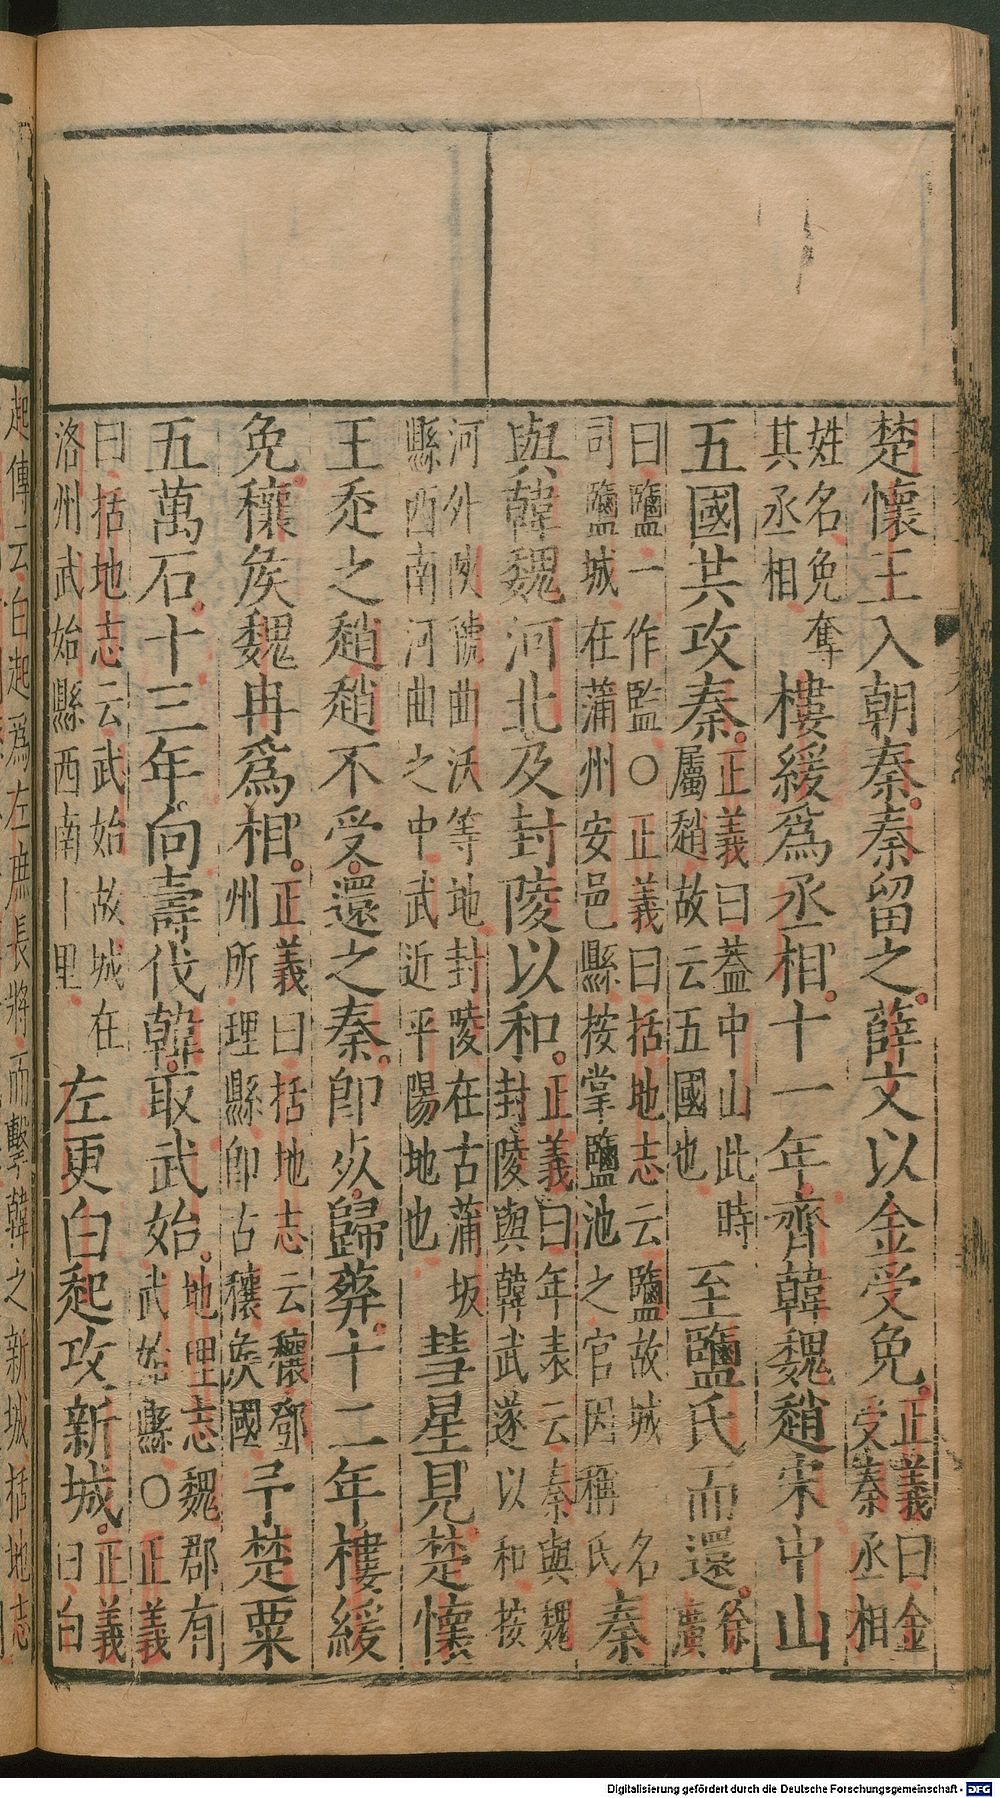 楚懷王入朝秦秦留之薛文以金受免正義曰金受秦丞相
姓名免奪其丞相樓緩爲丞相十一年齊韓魏趙宋中山
五國共攻秦正義曰蓋中山此時屬趙故云五國也至鹽氏而還徐廣
曰鹽一作監○正義曰括地志云鹽故城名司鹽城在蒲州安邑縣按掌鹽池之官因稱氏秦
與韓魏河北及封陵以和正義曰年表云秦與魏封陵與韓武遂以和按
河外陜虢曲沃等地封陵在古蒲坂縣西南河曲之中武近平陽地也彗星見楚懷
王走之趙趙不受還之秦卽死歸葬十二年樓緩
免穰矦魏冉爲相正義曰括地志云穰鄧州所理縣卽古穰矦國予楚粟
五萬石十三年向壽伐韓取武始地理志魏郡有武始縣○正義
曰括地志云武始故城在洛州武始縣西南十里左更白起攻新城正義曰白
起傳云白起爲左庶長將而擊韓之新城括地志
Digitalisierung gefördert durch die Deutsche Forschungsgemeinschaft - DFG